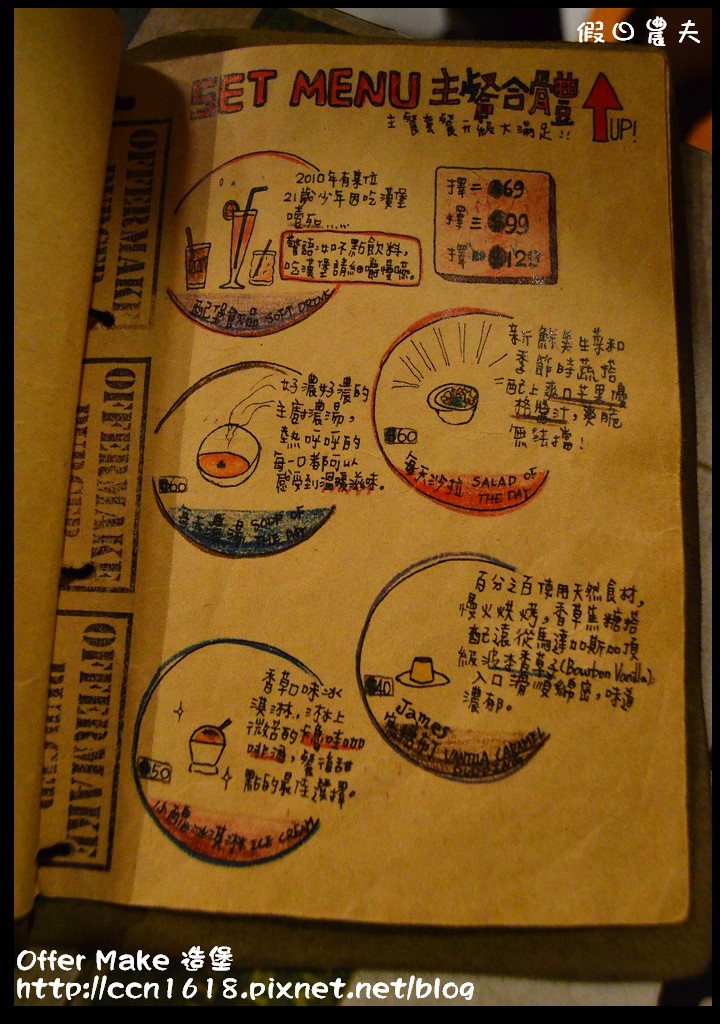 假日農夫
SET MENU 主餐合體
主餐套餐升級大滿足!!
UP!
2010年有某位
21歲少年因吃漢堡
噎死......
警語:如不點飲料,
吃漢堡請細嚼慢嚥。
配堡飲品 SOFT DRINK
擇二 $69
擇三 $99
擇四 $129
新鮮美生菜和
季節時蔬搭
配上爽口芒果優
格醬汁,爽脆
無法擋!
$60
每天沙拉 SALAD OF
THE DAY
好濃好濃的
主廚濃湯,
熱呼呼的
每一口都可以
感受到溫暖滋味。
$60
每天濃湯 SOUP OF
THE DAY
百分之百使用天然食材,
慢火烘烤,香草焦糖搭
配遠從馬達加斯加頂
級波本香草子(Bourbon Vanilla)
入口滑順綿密,味道
濃郁。
$40
James
焦糖布丁 VANILLA CARAMEL
PUDDING
香草口味冰
淇淋,淋上
微苦的卡魯哇咖
啡酒,餐後甜
點的最佳選擇。
$50
小酌冰淇淋 ICE CREAM
OFFERMAKE
BURGER
OFFERMAKE
BURGER
OFFERMAKE
BURGER
Offer Make 造堡
http://ccn1618.pixnet.net/blog